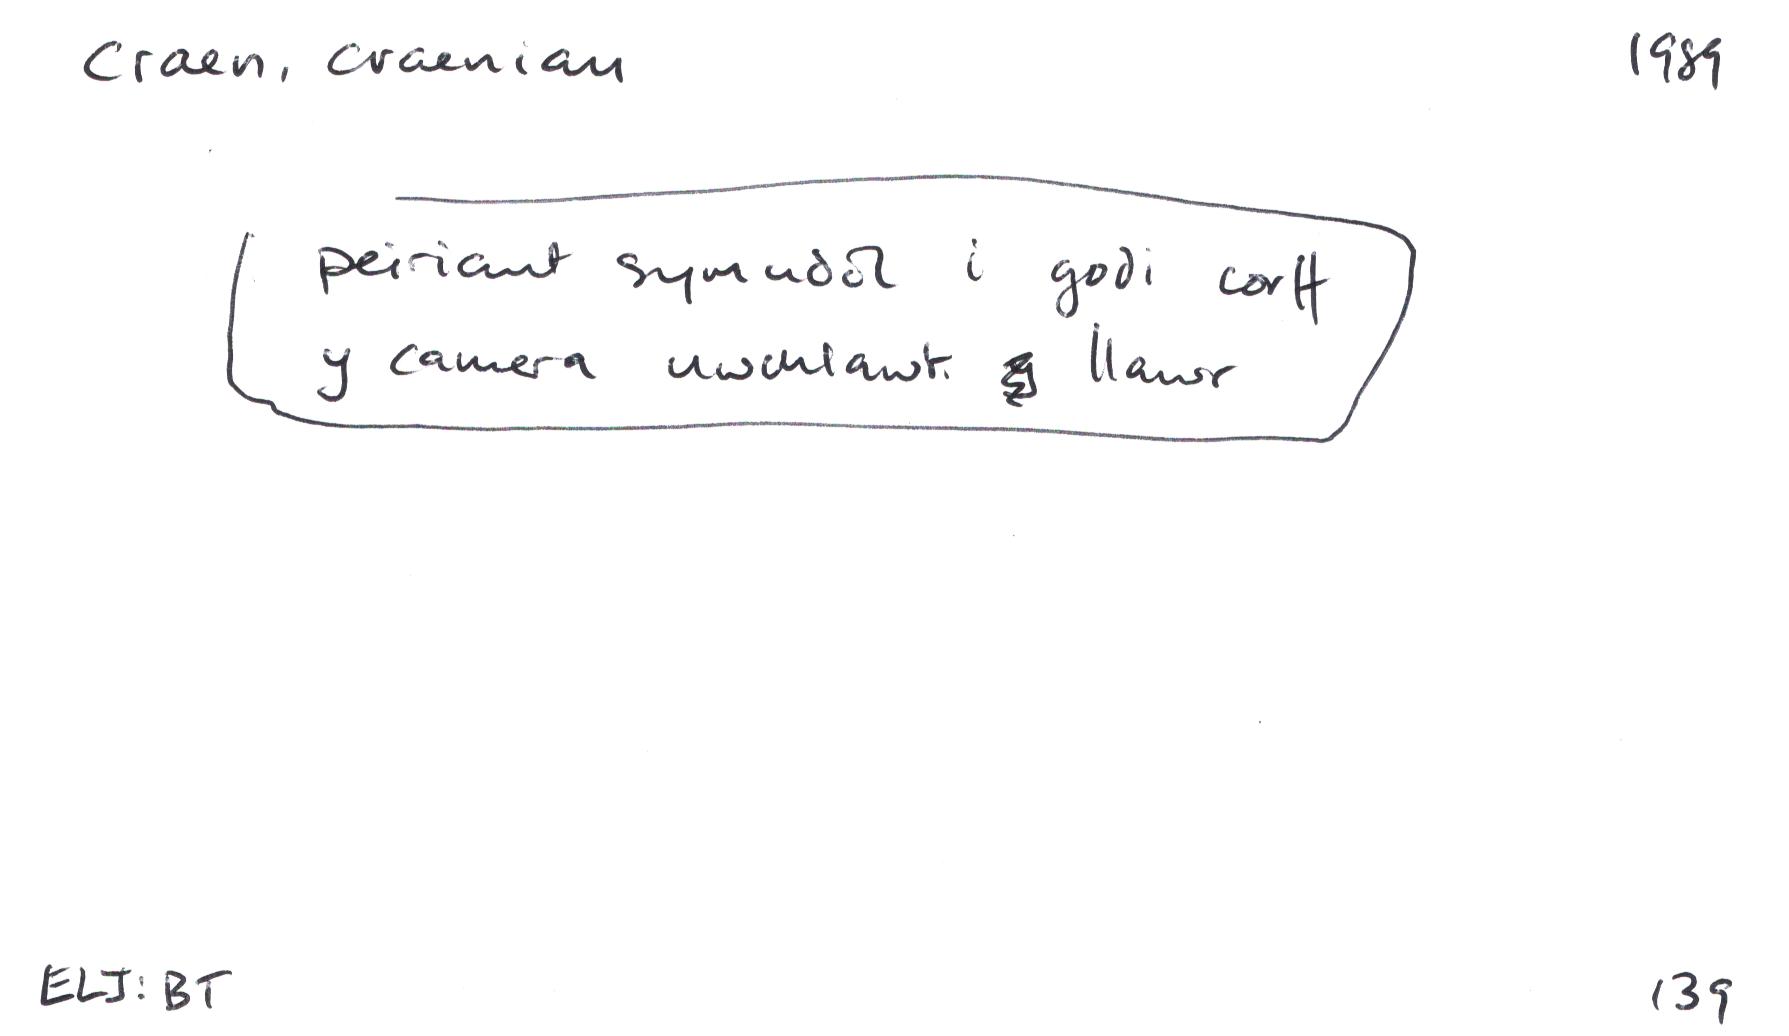 Craen, craeniau 1989
peiriant symudol i godi corff
y camera uwchlawr. y llawr
ELJ: BT 139